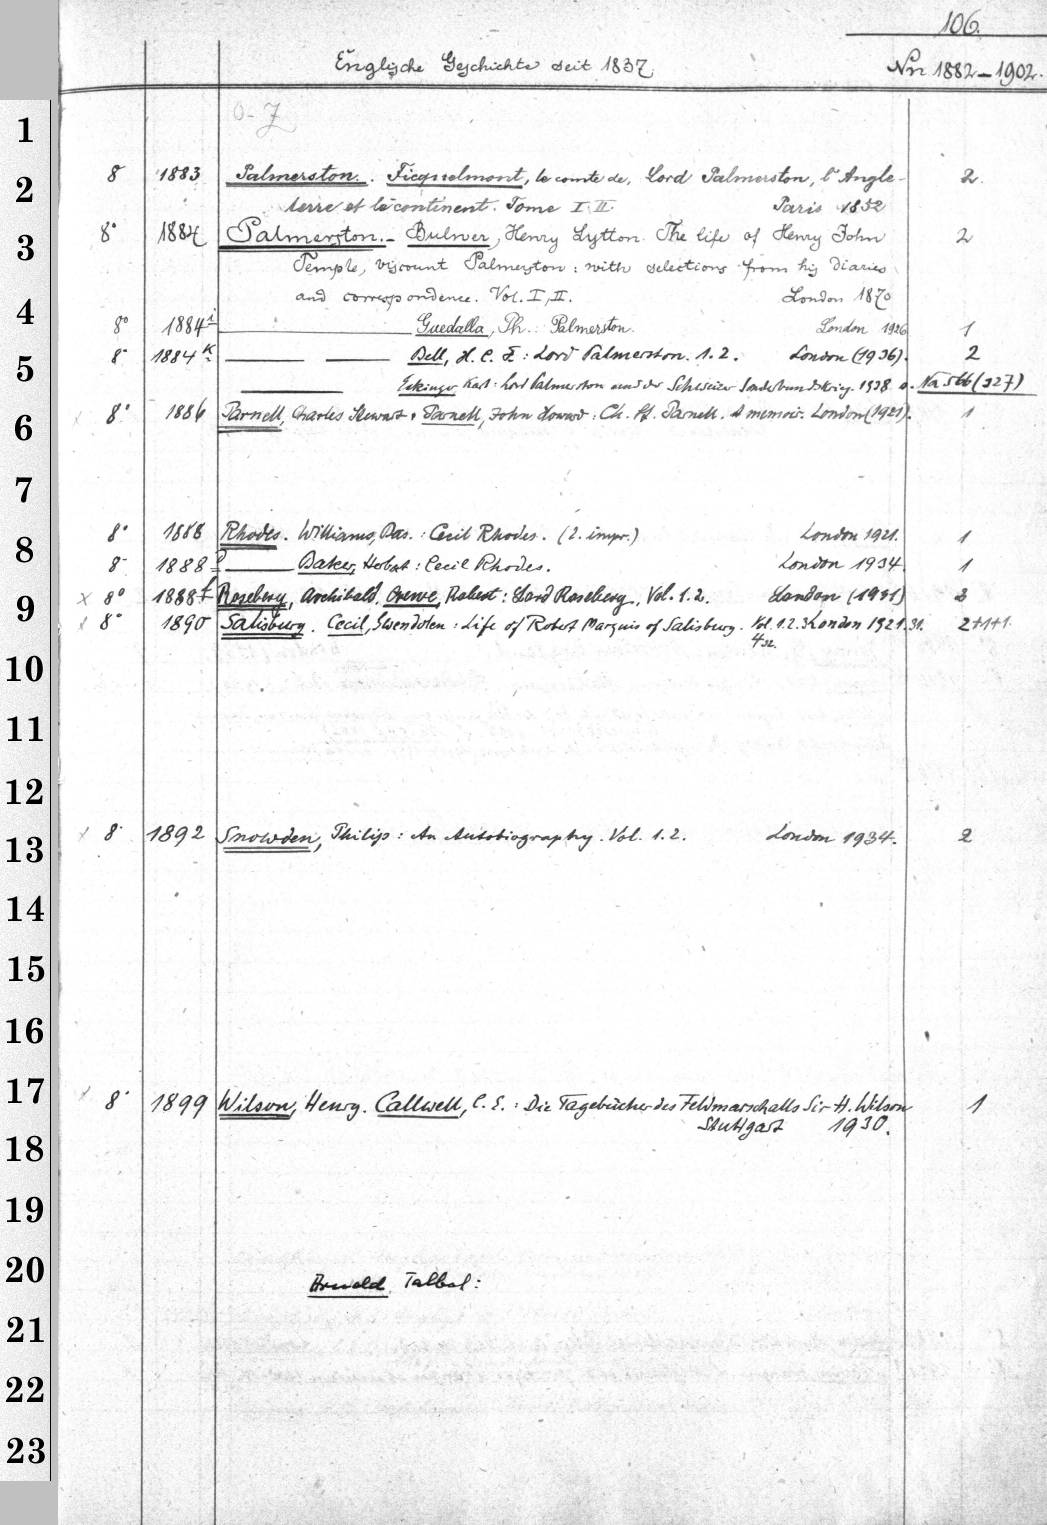 106.
Englische Geschichte seit 1837
Nrn 1882–1902.
O-Z
1
8° 1883 Palmerston. Ficquelmont, le comte de, Lord Palmerston, l'Angle- 2
2
terre et le continent. Tome I II. Paris 1852
3 8° 1884 Palmerston. – Bulwer, Henry Lytton. The life of Henry John 2
Temple, viscount Palmerston: with selections from his diaries
and correspondence. Vol. I, II. London 1870
4
8° 1884 i Guedalla, Ph.: Palmerston. London 1926 1
5 8° 1884 k Bell, H. C. F.: Lord Palmerston. 1.2. London (1936). 2
Eckinger Karl: Lord Palmerston und der Schweizer Sonderbundskrieg. 1938 s. Na 566 (327)
6 8° 1886 Parnell, Charles Stewart. Parnell, John Howard: Ch. St. Parnell. A memoir. London (1921). 1
7
8 8° 1888 Rhodes. Williams, Bas.: Cecil Rhodes. (2. impr.) London 1921. 1
8° 1888 Baker, Herbert: Cecil Rhodes. London 1934. 1
9 x 8° 1888 f Rosebery, Archibald. Crewe, Robert: Lord Rosebery. Vol. 1.2. London (1931) 2
x 8° 1890 Salisbury. Cecil, Gwendolen: Life of Robert Marquis of Salisbury. Vol. 1.2.3 London 1921.31. 2+1+1.
4 32.
10
11
12
13 x 8° 1892 Snowden, Philip: An Autobiography. Vol. 1.2. London 1934. 2
14
15
16
17 x 8° 1899 Wilson, Henry. Callwell, C. E.: Die Tagebücher des Feldmarschalls Sir H. Wilson 1
Stuttgart 1930.
18
19
20 Arnold Talbot:
21
22
23